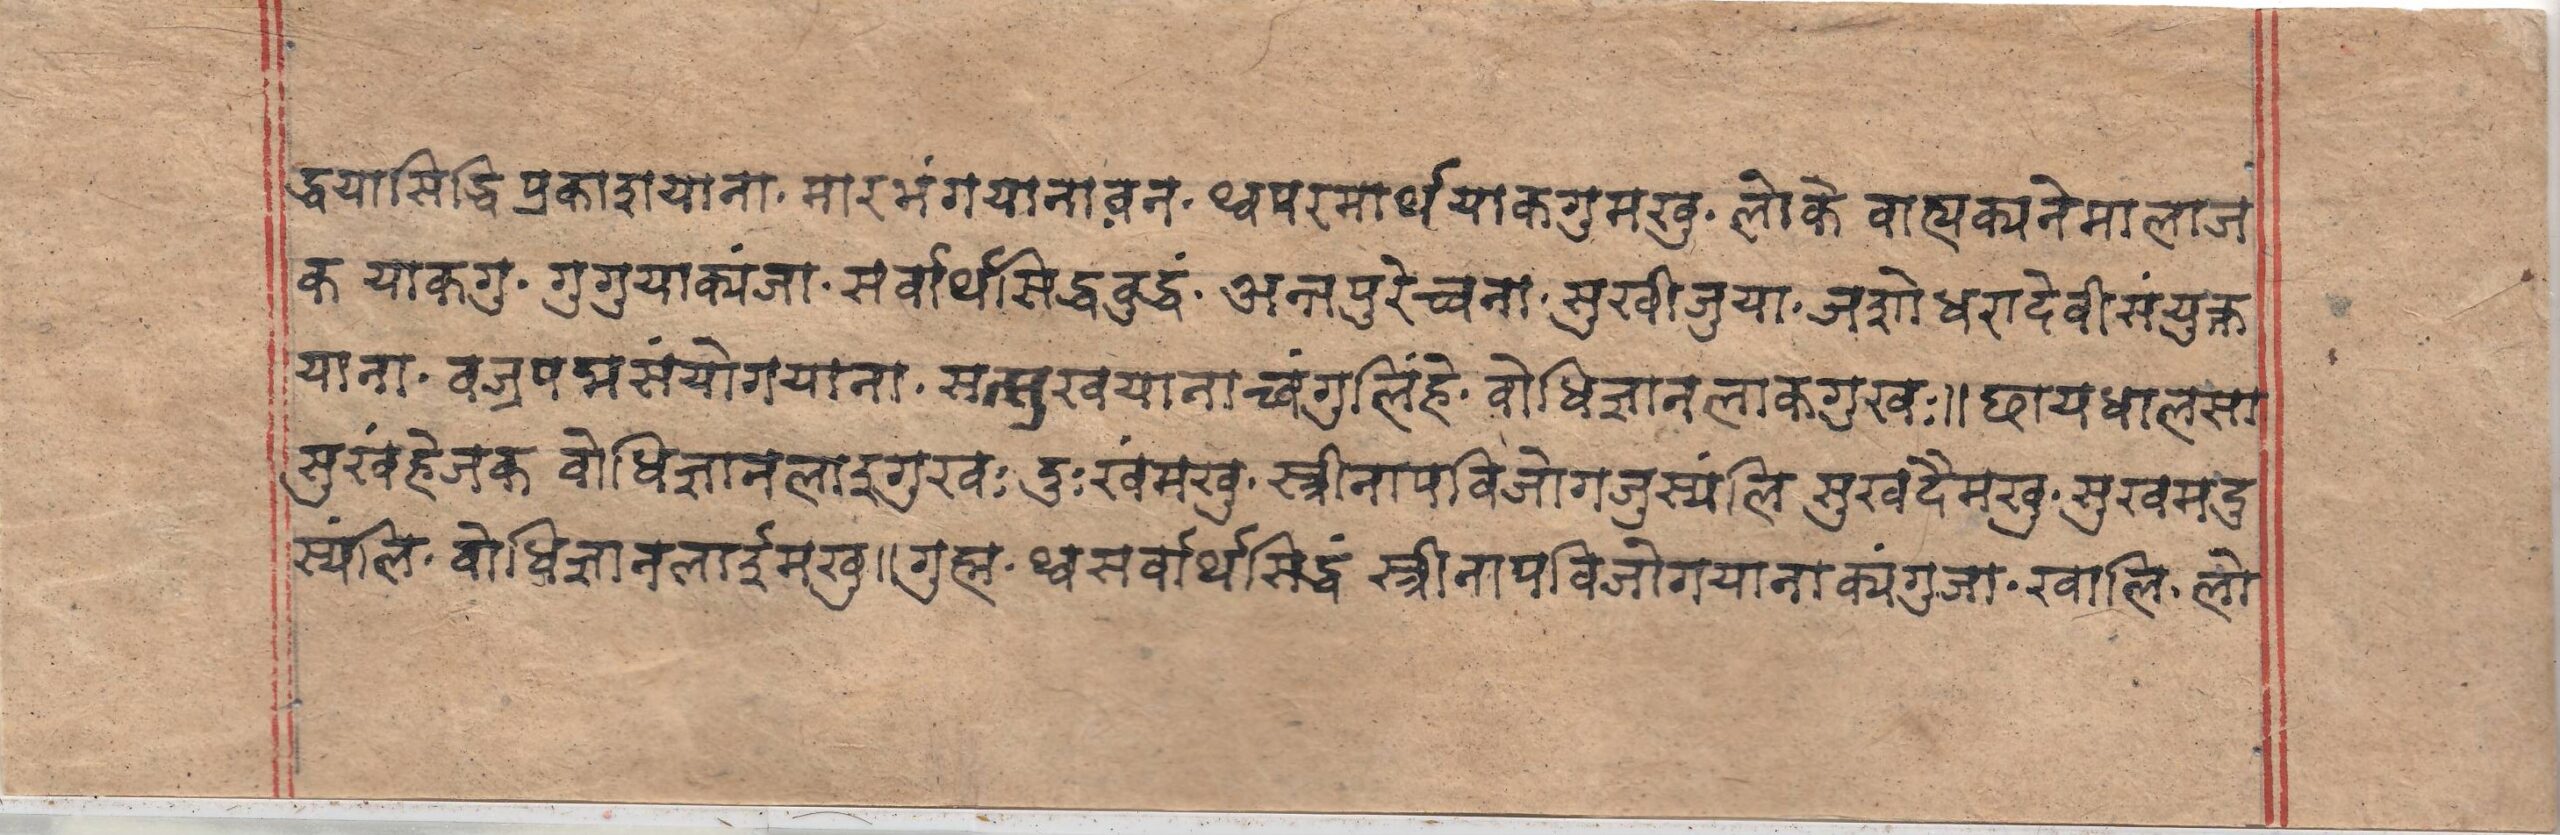 द्धयासिद्धि प्रकाशयाना. मारभंगयानावन. थ्वपरमार्थयाकगुमखु. लोकै वाह्यक्यनेमालाज
क याकगु. गुगुयाक्यंजा. सर्वार्थसिद्धबुद्धं. अन्तपुरेच्वना. सुखीजुया. जशोधरादेवीसंयुक्त
याना. वज्रपद्मसंयोगयाना. सत्सुखयानाच्वंगुलिंहे. बोधिज्ञानलाकगुखः॥ छायधालसा
सुखंहेजक बोधिज्ञानलाइगुखः दुःखंमखु. स्त्रीनापविजोगजुस्यंलि सुखदैमखु. सुखमदु
स्यंलि. बोधिज्ञानलाईमखु॥ गुह्म. थ्वसर्वार्थसिद्धं स्त्रीनापविजोगयानाक्यंगुजा. खालि. लो